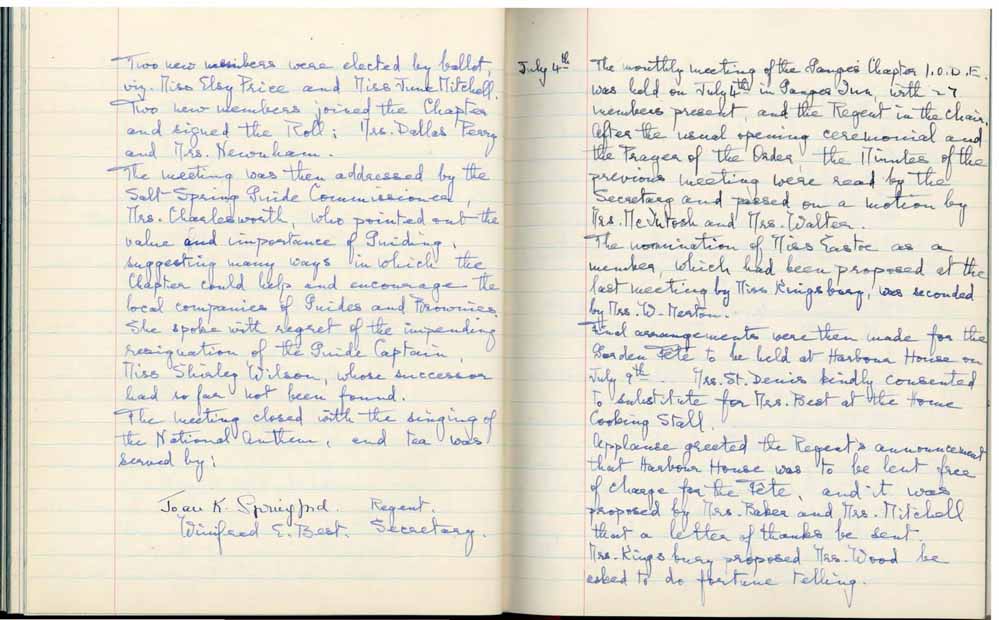 Two new members were elected by ballot,
viz. Miss Elsy Price and Miss June Mitchell.
Two new members joined the Chapter
and signed the Roll; Mrs. Dallas Perry
and Mrs. Newnham.
The meeting was then addressed by the
Salt Spring Guide Commissioner,
Mrs. Charlesworth, who pointed out the
value and importance of Guiding,
suggesting many ways in which the
Chapter could help and encourage the
local companies of Guides and Brownies.
She spoke with regret of the impending
resignation of the Guide Captain,
Miss Shirley Wilson, whose successor
had so far not been found.
The meeting closed with the singing of
the National Anthem, and tea was
served by:
Joan K. Springford. Regent.
Winifred E. Best. Secretary.
July 4th The monthly meeting of the Ganges Chapter I.O.D.E.
was held on July 4th in Ganges Inn, with 27
members present, and the Regent in the chair.
After the usual opening ceremonial and
the Prayer of the Order, the Minutes of the
previous meeting were read by the
Secretary and passed on a motion by
Mrs. McIntosh and Mrs. Walter.
The nomination of Miss Eastoe as a
member, which had been proposed at the
last meeting by Miss Kingsbury, was seconded
by Mrs. W. Norton.
Final arrangements were then made for the
Garden Fête to be held at Harbour House on
July 9th. Mrs. St. Denis kindly consented
to substitute for Mrs. Best at the Home
Cooking Stall.
Applause greeted the Regent's announcement
that Harbour House was to be lent free
of charge for the Fête, and it was
proposed by Mrs. Baker and Mrs. Mitchell
that a letter of thanks be sent.
Mrs. Kingsbury proposed Mrs. Wood be
asked to do fortune telling.